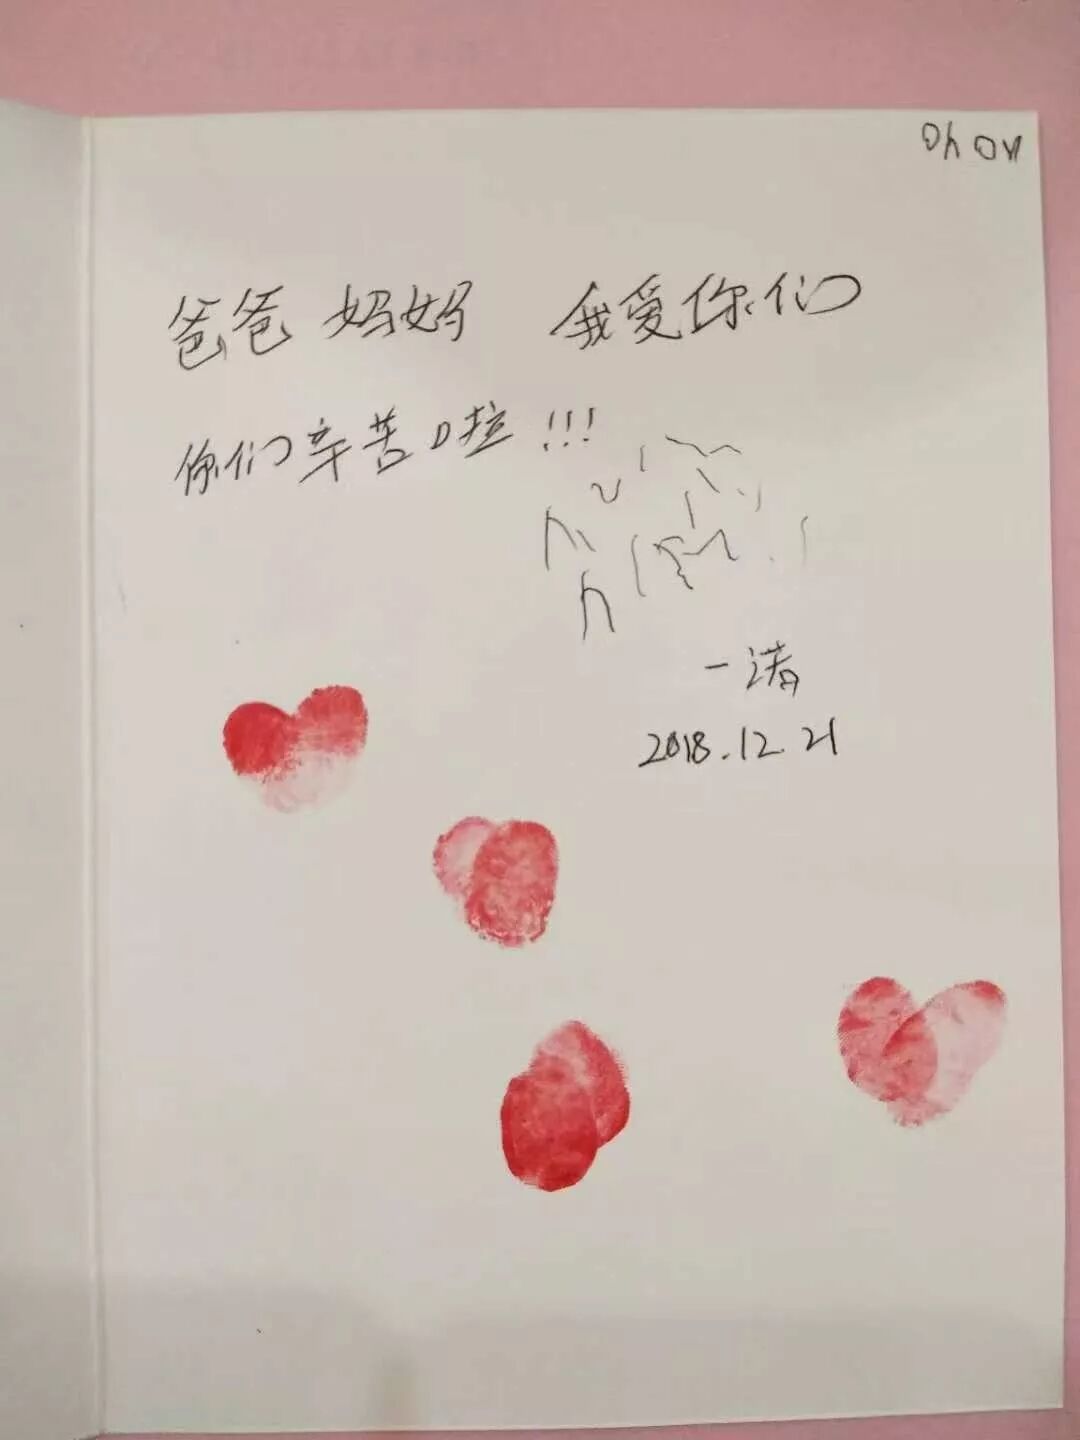 爸爸 妈妈 我爱你们
你们辛苦啦!!!
一诺
2018.12.21